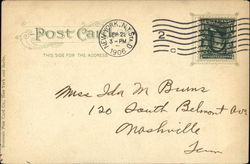 Post Card
THIS SIDE FOR THE ADDRESS
NEW YORK, N.Y. STA. D
3-PM
1906
2
C
Miss Ida M Burns
120 South Belmont Ave
Nashville
Tenn